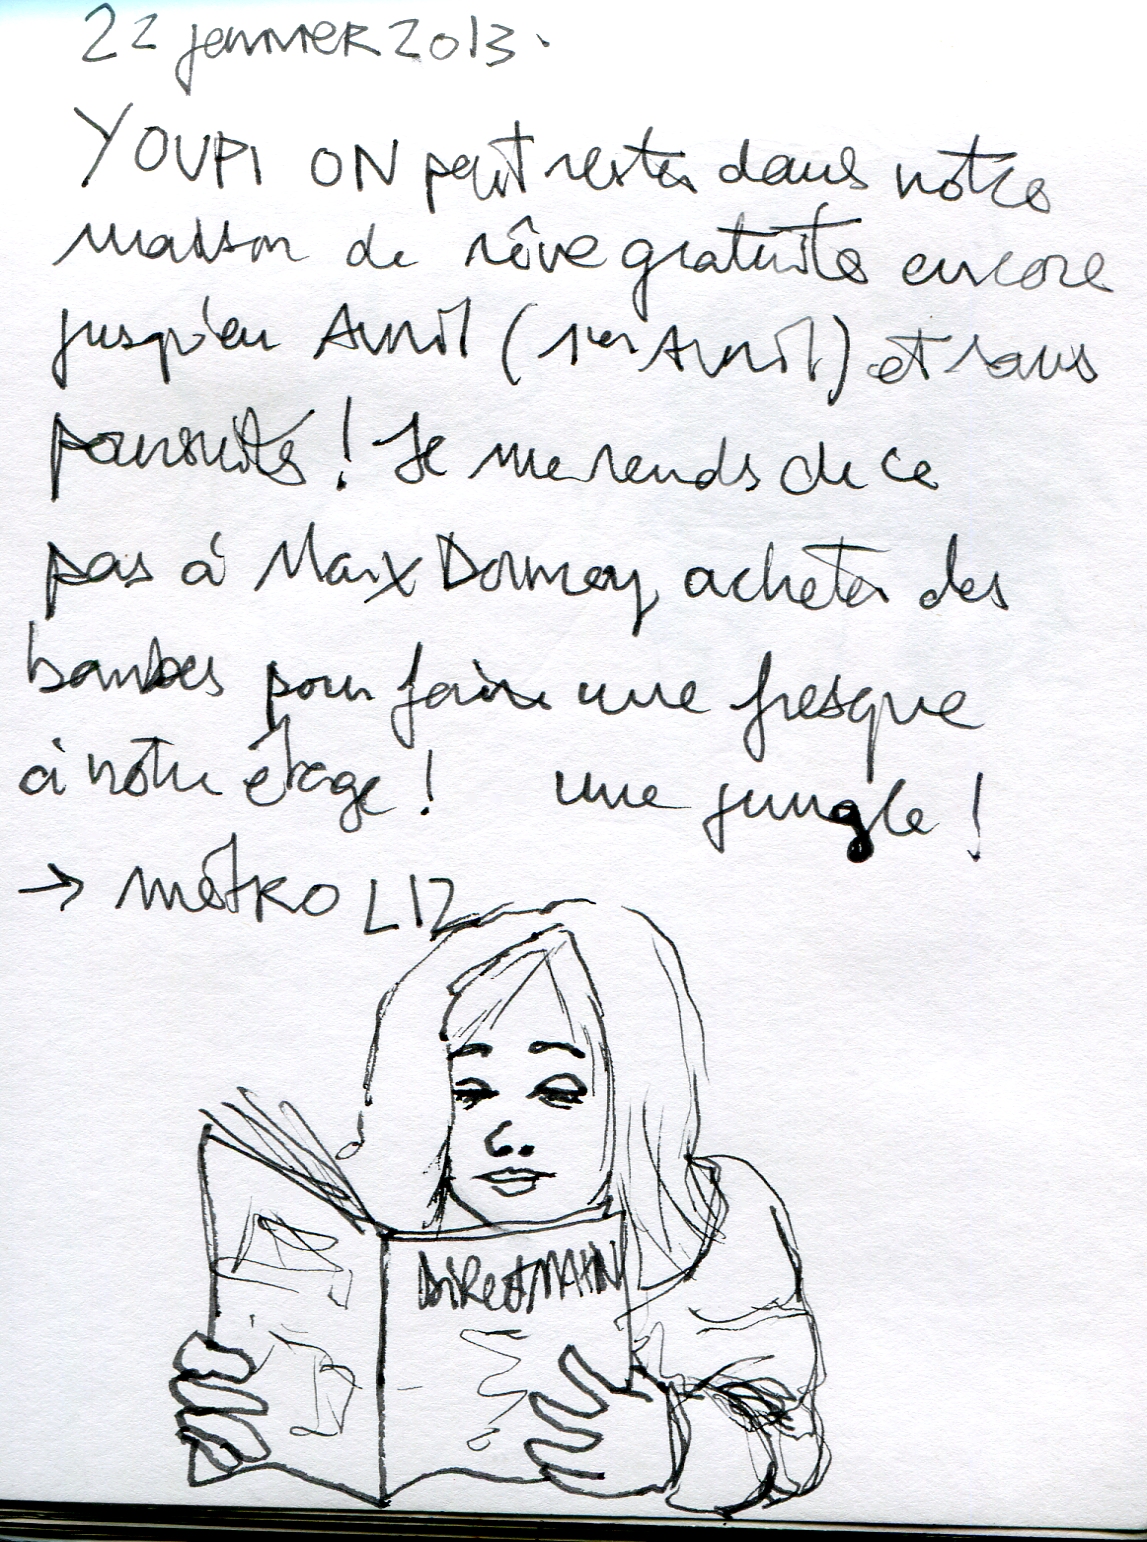 22 janvier 2013.
YOUPI ON peut rester dans notre
maison de rêve gratuite encore
jusqu'en Avril (1er Avril) et sans
poursuites ! Je me rends de ce
pas à Marx Dormoy acheter des
bombes pour faire une fresque
à notre étage ! une jungle !
→ métro L12
DiRectMATIN